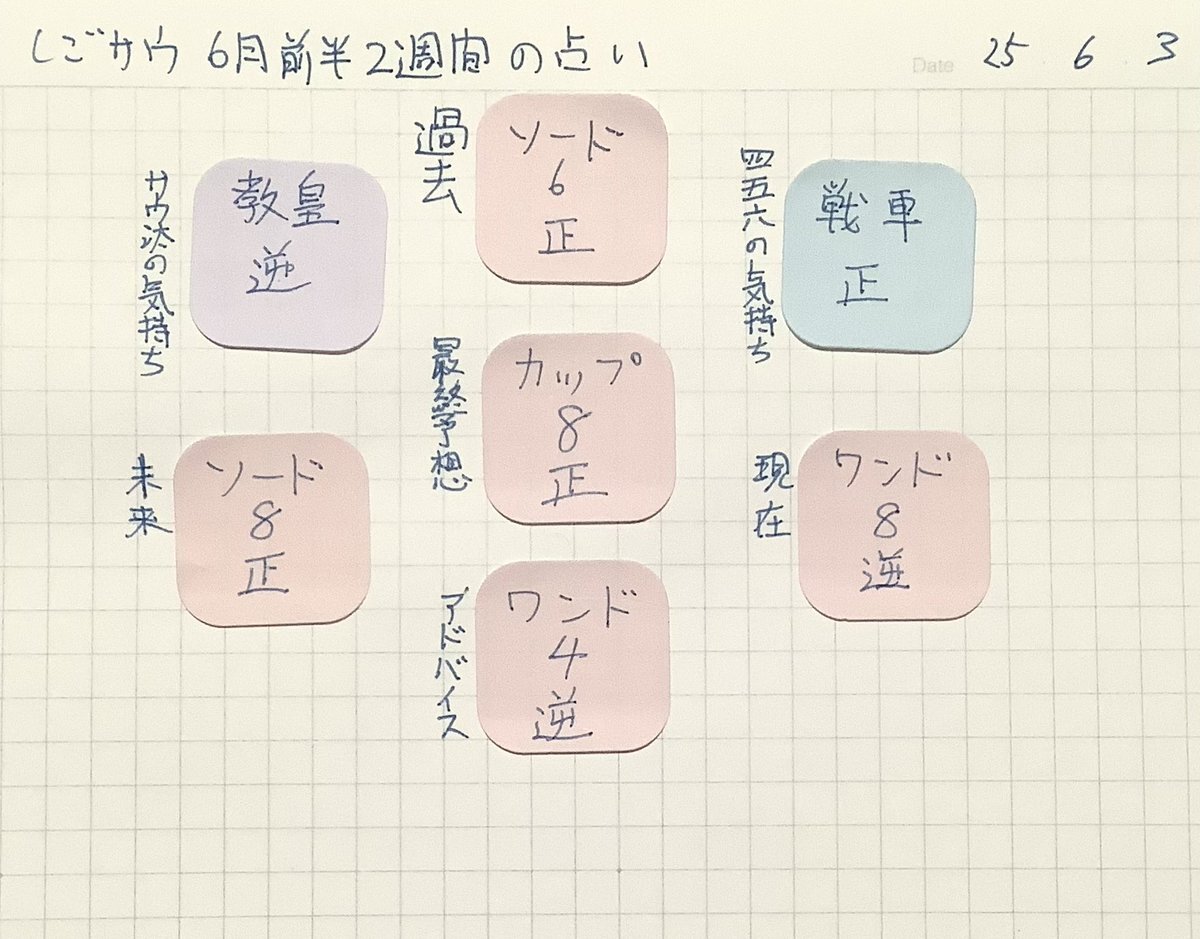 しごサウ 6月前半2週間の占い
Date 25 6 3
過去
ソード
6
正
サウ汰の気持ち
教皇
逆
四五六の気持ち
戦車
正
最終予想
カップ
8
正
未来
ソード
8
正
現在
ワンド
8
逆
アドバイス
ワンド
4
逆